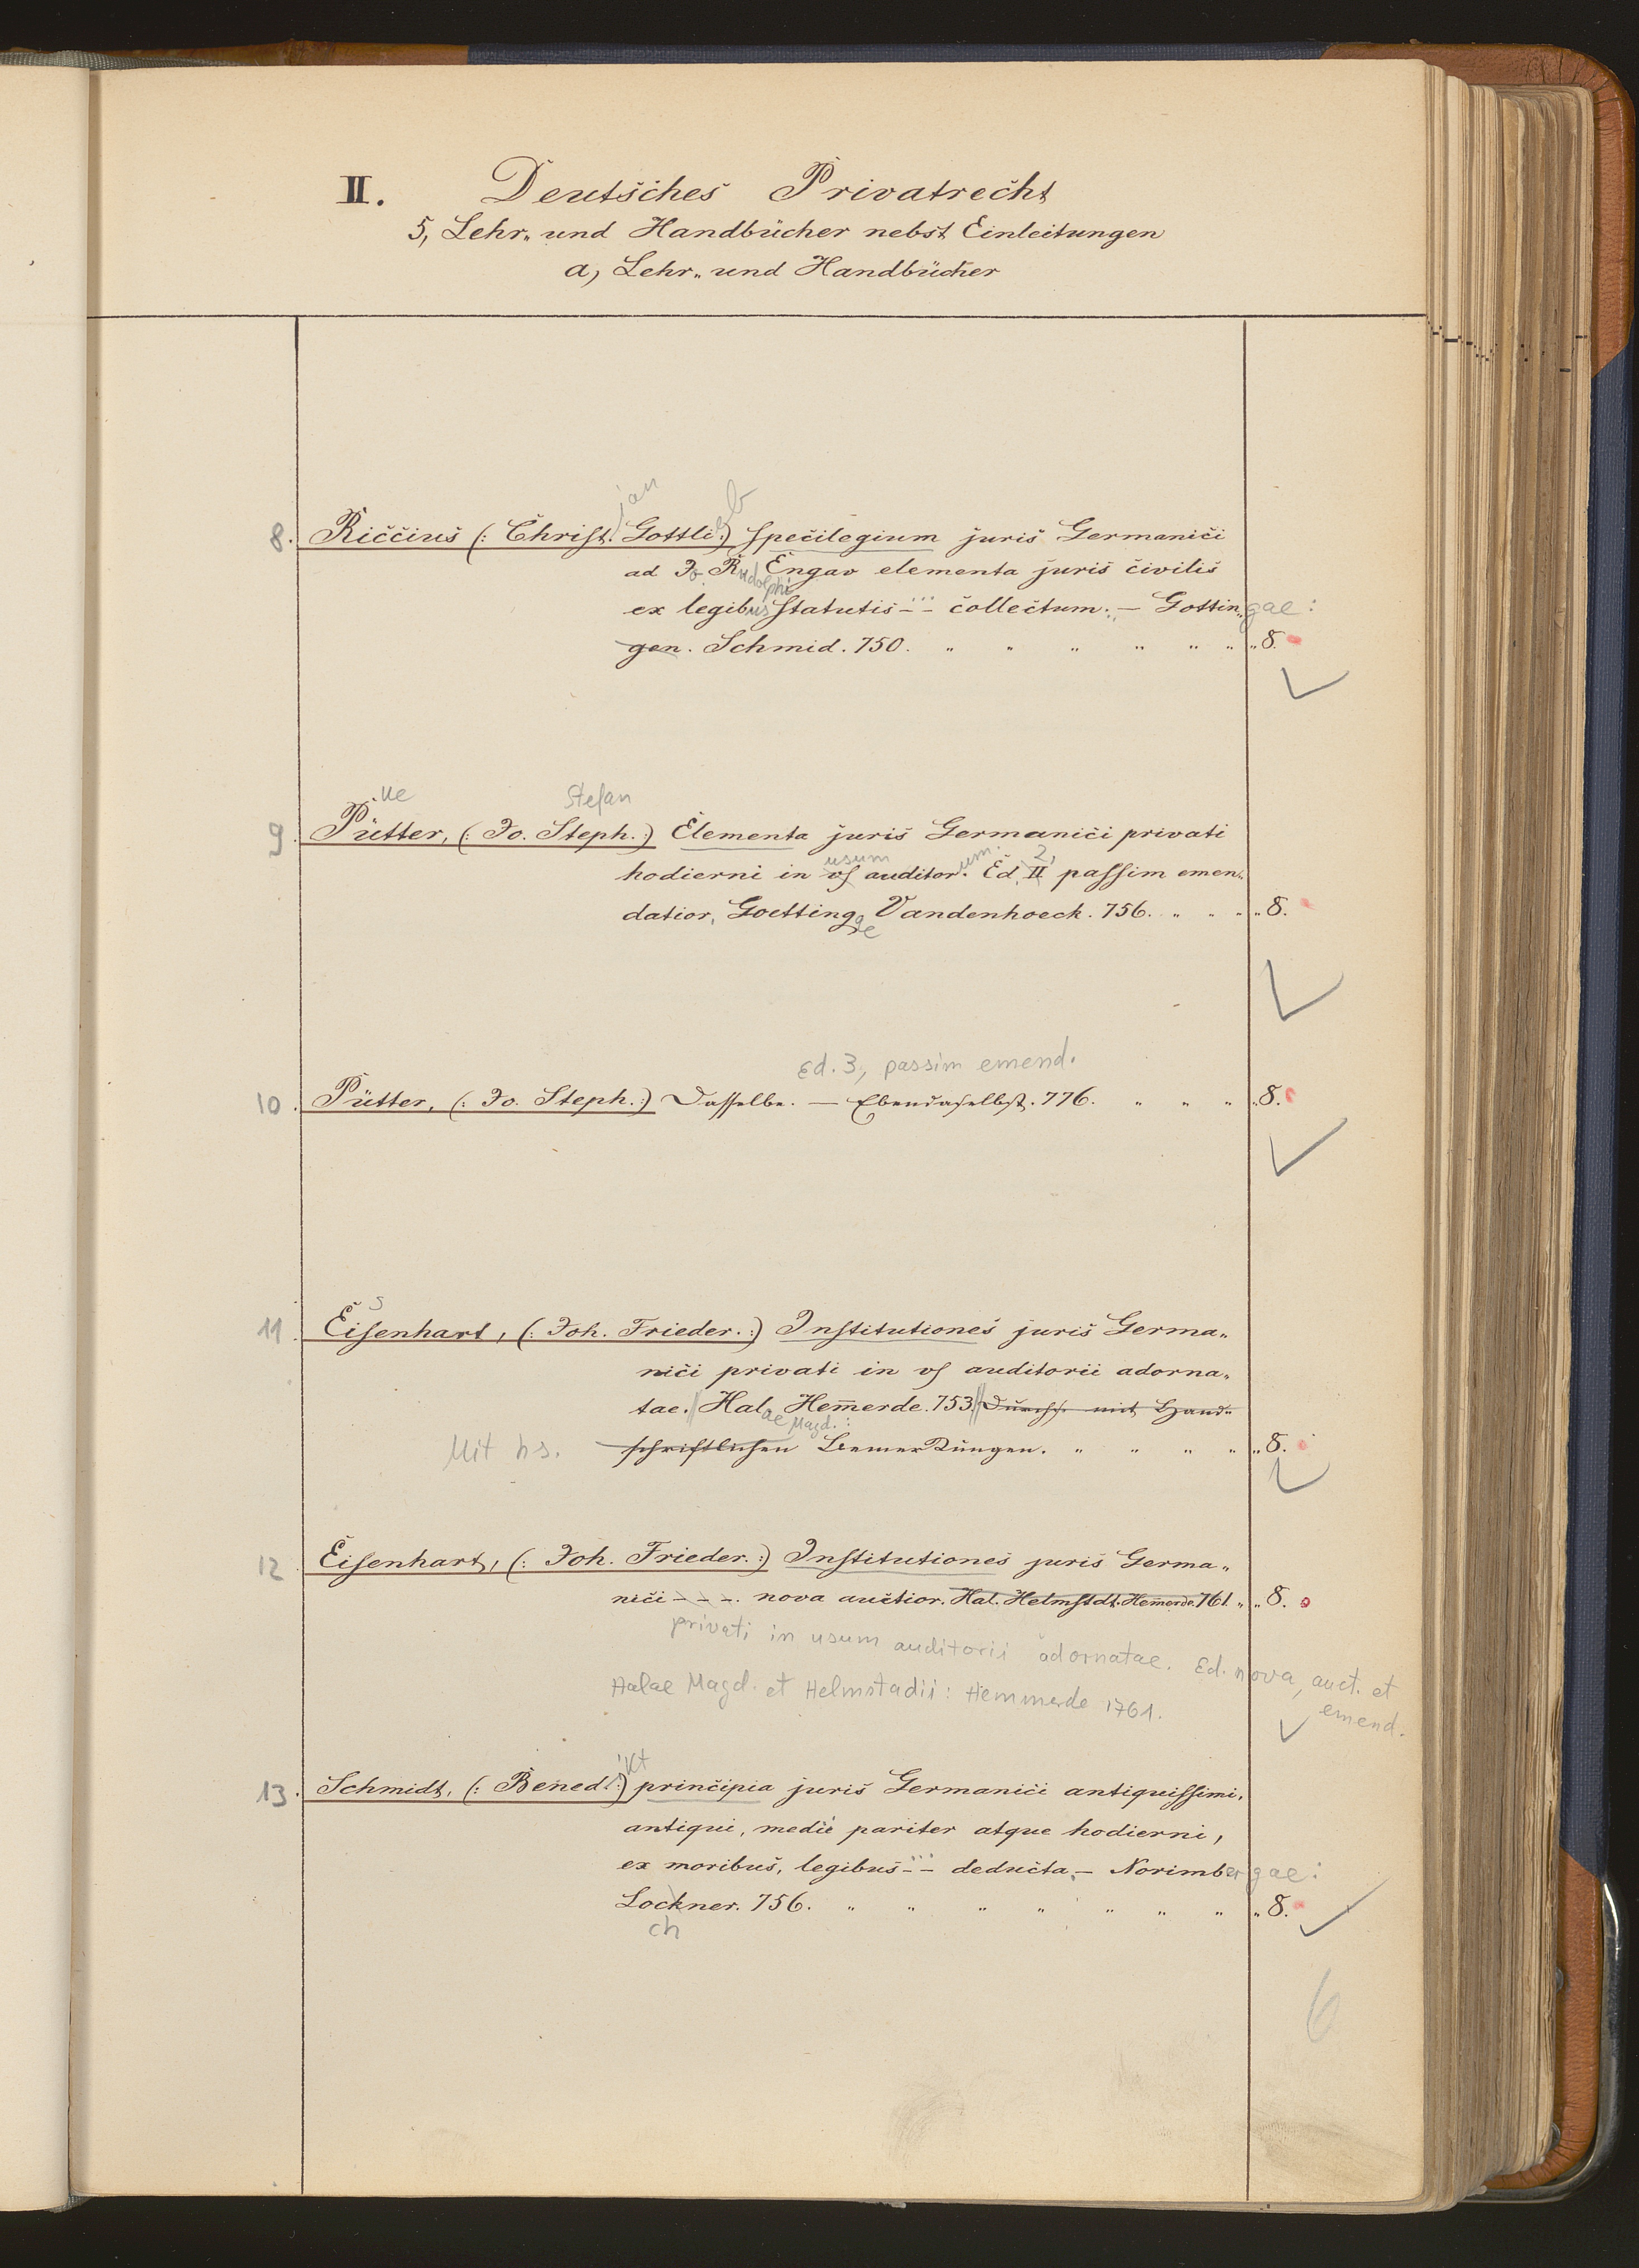 II. Deutsches Privatrecht
5, Lehr„ und Handbücher nebst Einleitungen
a, Lehr„ und Handbücher
jan b
8. Riccius (: Christ. Gottlie:) specilegium juris Germanici
ad Jo. Rudolphi Engav elementa juris civilis
ex legibus statutis --- collectum. — Gottin„gae:
gen. Schmid. 750. „ „ „ „ „ „ „ 8.
ue Stefan
9. Pütter, (: Jo. Steph. :) Elementa juris Germanici privati
usum um. 2,
hodierni in us auditor. Ed. II passim emen„
datior, Goetting Vandenhoeck. 756. „ „ „ „ 8.
ae
Ed. 3, passim emend.
10. Pütter, (: Jo. Steph. :) Dasselbe. — Ebendaselbst. 776. „ „ „ „ 8.
s
11. Eisenhart, (: Joh. Frieder. :) Institutiones juris Germa„
nici privati in us auditorii adorna„
tae. Hal. Hem̅erde. 753. Durchsch. mit Hand„
ae Magd.:
Mit hs. schriftlichen Bemerkungen. „ „ „ „ „ 8.
12 Eisenhart, (: Joh. Frieder. :) Institutiones juris Germa„
nici - - -. nova auctior. Hal. Helmstdt. Hem̅erde. 761. „ „ 8.
privati in usum auditorii adornatae. Ed. nova, auct. et
emend.
Halae Magd. et Helmstadii: Hemmerde 1761.
ikt
13. Schmidt, (: Bened. :) principia juris Germanici antiquissimi,
antiqui, medii pariter atque hodierni,
ex moribus, legibus --- deducta. — Norimbergae:
Lockner. 756. „ „ „ „ „ „ „ „ 8.
ch
6